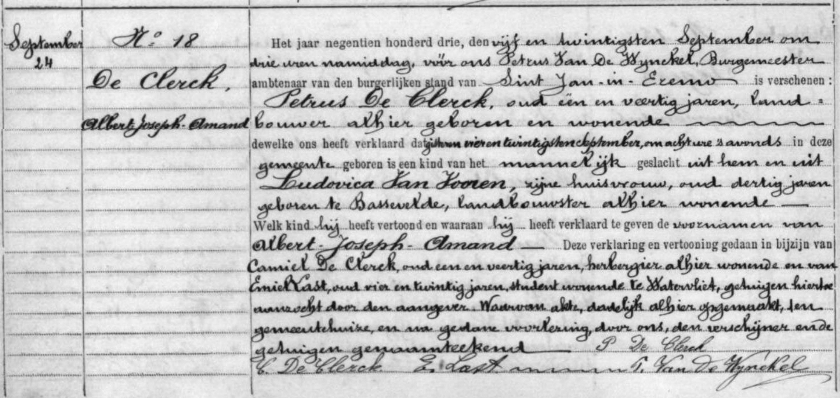 September
24
N° 18
De Clerck,
Albert-Joseph-Amand
Het jaar negentien honderd drie, den vijf en twintigsten September om
drie uren namiddag, vóór ons Petrus Van De Wynckel, Burgemeester
ambtenaar van den burgerlijken stand van Sint Jan-in-Eremo is verschenen:
Petrus De Clerck, oud één en veertig jaren, land=
bouwer alhier geboren en wonende
dewelke ons heeft verklaard dat gisteren vier en twintigsten September, om acht ure 's avonds in deze
gemeente geboren is een kind van het mannelijk geslacht uit hem en uit
Ludovica Van Vooren, zijne huisvrouw, oud dertig jaren
geboren te Bassevelde, landbouwster alhier wonende
Welk kind hij heeft vertoond en waaraan hij heeft verklaard te geven de voornamen van
Albert-Joseph-Amand Deze verklaring en vertooning gedaan in bijzijn van
Camiel De Clerck, oud een en veertig jaren, herbergier alhier wonende en van
Emiel Last, oud vier en twintig jaren, student wonende te Watervliet, getuigen hiertoe
aanzocht door den aangever. Waarvan akte, dadelijk alhier opgemaakt, ten
gemeentehuize, en na gedane voorlezing, door ons, den verschijner en de
getuigen genaamteekend P De Clerck
C. De Clerck E. Last P. Van De Wynckel